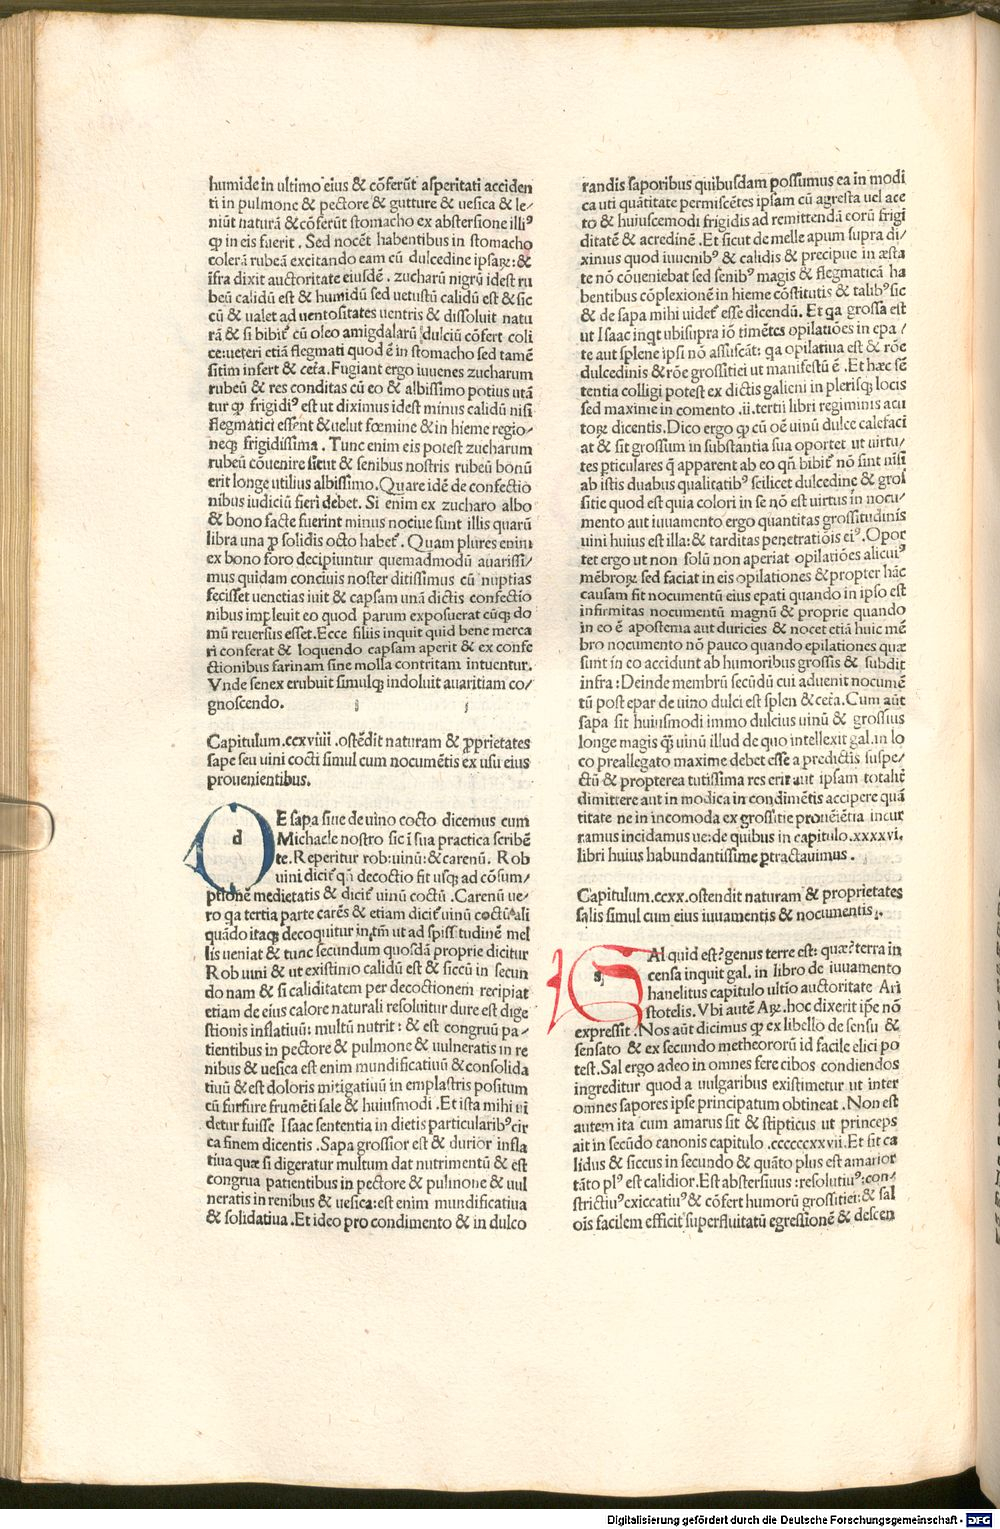 humide in ultimo eius & cōferūt asperitati acciden
ti in pulmone & pectore & gutture & uesica & le/
niūt naturā & cōferūt stomacho ex abstersione illiꝰ
ꝙ in eis fuerit . Sed nocēt habentibus in stomacho
colerā rubeā excitando eam cū dulcedine ipsaꝝ: &
īfra dixit auctoritate eiusdē . zucharū nigrū idest ru
beū calidū est & humidū sed uetustū calidū est & sic
cū & ualet ad uentositates uentris & dissoluit natu
rā & si bibit̄ cū oleo amigdalarū dulciū cōfert coli
ce: ueteri etiā flegmati quod ē in stomacho sed tamē
sitim infert & cet̄a. Fugiant ergo iuuenes zucharum
rubeū & res conditas cū eo & albissimo potius utā
tur ꝙ frigidiꝰ est ut diximus idest minus calidū nisi
flegmatici essent & uelut fœmine & in hieme regio/
neqꝫ frigidissima . Tunc enim eis potest zucharum
rubeū cōuenire sicut & senibus nostris rubeū bonū
erit longe utilius albissimo. Quare idē de confectio
nibus iudiciū fieri debet. Si enim ex zucharo albo
& bono facte fuerint minus nociue sunt illis quarū
libra una ꝓ solidis octo habet̄. Quam plures enim
ex bono foro decipiuntur quemadmodū auarissi/
mus quidam conciuis noster ditissimus cū nuptias
fecisset uenetias iuit & capsam unā dictis confectio
nibus impleuit eo quod parum exposuerat cūqꝫ do
mū reuersus esset. Ecce filiis inquit quid bene merca
ri conferat & loquendo capsam aperit & ex confe
ctionibus farinam sine molla contritam intuentur.
Vnde senex erubuit simulqꝫ indoluit auaritiam co/
gnoscendo.
Capitulum.ccxviiii .ostēdit naturam & ꝓprietates
sape seu uini cocti simul cum nocumētis ex usu eius
prouenientibus.
d
E sapa siue de uino cocto dicemus cum
Michaele nostro sic ī sua practica scribē
te. Reperitur rob: uinū: & carenū. Rob
uini dicit̄ qn̄ decoctio fit usqꝫ ad cōsum/
ptionē medietatis & dicit̄ uinū coctū .Carenū ue/
ro qa tertia parte carēs & etiam dicit̄ uinū coctū ali
quādo itaqꝫ decoquitur intm̄ ut ad spissitudinē mel
lis ueniat & tunc secundum quosdā proprie dicitur
Rob uini & ut existimo calidū est & siccū in secun
do nam & si caliditatem per decoctionem recipiat
etiam de eius calore naturali resoluitur dure est dige
stionis inflatiuū: multū nutrit: & est congruū pa/
tientibus in pectore & pulmone & uulneratis in re
nibus & uesica est enim mundificatiuū & consolida
tiuū & est doloris mitigatiuū in emplastris positum
cū furfure frumēti sale & huiusmodi . Et ista mihi ui
detur fuisse Isaac sententia in dietis particularibꝰ cir
ca finem dicentis . Sapa grossior est & durior infla
tiua quæ si digeratur multum dat nutrimentū & est
congrua patientibus in pectore & pulmone & uul
neratis in renibus & uesica: est enim mundificatiua
& solidatiua . Et ideo pro condimento & in dulco
randis saporibus quibusdam possumus ea in modi
ca uti quātitate permiscētes ipsam cū agresta uel ace
to & huiuscemodi frigidis ad remittendā eorū frigi
ditatē & acredinē . Et sicut de melle apum supra di/
ximus quod iuuenibꝰ & calidis & precipue in æsta
te nō cōueniebat sed senibꝰ magis & flegmaticā ha
bentibus cōplexionē in hieme cōstitutis & talibꝰ sic
& de sapa mihi uidet̄ esse dicendū. Et qa grossa est
ut Isaac inqt ubisupra iō timētes opilatiōes in epa /
te aut splene ipsi nō assuescāt: qa opilatiua est & rōe
dulcedinis & rōe grossitiei ut manifestū ē . Et hæc sē
tentia colligi potest ex dictis galieni in plerisqꝫ locis
sed maxime in comento .ii. tertii libri regiminis acu
toꝝ dicentis. Dico ergo ꝙ cū oē uinū dulce calefaci
at & sit grossum in substantia sua oportet ut uirtu/
tes pticulares q̄ apparent ab eo qn̄ bibit̄ nō sint nisi
ab istis duabus qualitatibꝰ scilicet dulcedine & gros
sitie quod est quia colori in se nō est uirtus in nocu/
mento aut iuuamento ergo quantitas grossitudinis
uini huius est illa: & tarditas penetratiōis eiꝰ. Opor
tet ergo ut non solū non aperiat opilatiōes alicuiꝰ
mēbroꝝ sed faciat in eis opilationes & propter hāc
causam fit nocumentū eius epati quando in ipso est
infirmitas nocumentū magnū & proprie quando
in eo ē apostema aut duricies & nocet etiā huic mē
bro nocumento nō pauco quando epilationes quæ
sunt in eo accidunt ab humoribus grossis & subdit
infra: Deinde membrū secūdū cui aduenit nocumē
tū post epar de uino dulci est splen & cet̄a. Cum aūt
sapa sit huiusmodi immo dulcius uinū & grossius
longe magis q̄ꝫ uinū illud de quo intellexit gal. in lo
co preallegato maxime debet esse a predictis suspe/
ctū & propterea tutissima res erit aut ipsam totalit̄
dimittere aut in modica in condimētis accipere quā
titate ne in incomoda ex grossitie prouēiētia incur
ramus incidamus ue: de quibus in capitulo.xxxxvi.
libri huius habundantissime ꝑtractauimus .
Capitulum.ccxx. ostendit naturam & proprietates
salis simul cum eius iuuamentis & nocumentis.
s
Al quid est? genus terre est: quæ? terra in
censa inquit gal. in libro de iuuamento
hanelitus capitulo ultīo auctoritate Ari
stotelis. Vbi autē Aꝝ. hoc dixerit ip̄e nō
expressit .Nos aūt dicimus ꝙ ex libello de sensu &
sensato & ex secundo metheororū id facile elici po
test. Sal ergo adeo in omnes fere cibos condiendos
ingreditur quod a uulgaribus existimetur ut inter
omnes sapores ipse principatum obtineat . Non est
autem ita cum amarus sit & stipticus ut princeps
ait in secūdo canonis capitulo .ccccccxxvii. Et sit ca
lidus & siccus in secundo & quāto plus est amarior
tāto plꝰ est calidior. Est abstersiuus: resolutiuꝰ: con/
strictiuꝰ exiccatiuꝰ & cōfert humorū grossitiei: & sal
ois facilem efficit superfluitatū egressionē & descen
Digitalisierung gefördert durch die Deutsche Forschungsgemeinschaft - DFG